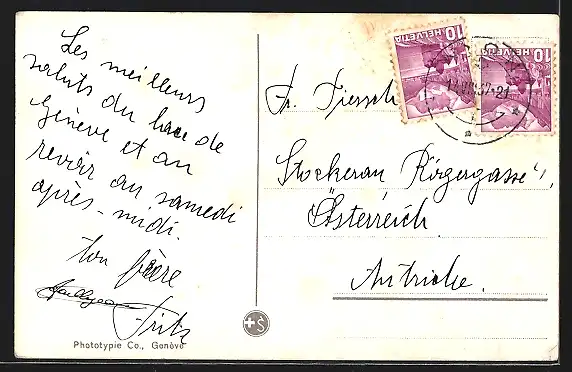 Les meilleurs
saluts du lac de
Genève et au
revoir au samedi
après-midi.
ton frère
Fritz
Phototypie Co., Genève
+S
Fr. Piersch
Stockerau
Österreich.
Autriche.
HELVETIA
10
HELVETIA
10